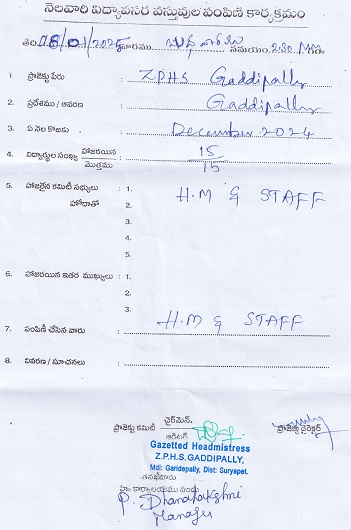 నెలవారి విద్యావసర వస్తువుల పంపిణి కార్యక్రమం
తేది 08/01/2025 వారము బుధ వారము సమయం 2:30 గం.
1. ప్రాజెక్టు పేరు : ZPHS Gaddipally
2. ప్రదేశము / ఆవరణ : Gaddipally
3. ఏ నెల కొఱకు : December 2024
4. విద్యార్థుల సంఖ్య హాజరయిన / మొత్తము : 15 / 15
5. హాజరైన కమిటీ సభ్యులు : 1. H.M & STAFF
హోదాతో 2.
3.
4.
5.
6. హాజరయిన ఇతర ముఖ్యులు : 1.
2.
3.
7. పంపిణీ చేసిన వారు : H.M & STAFF
8. వివరణ / సూచనలు :
ప్రాజెక్టు కమిటీ చైర్‌మెన్.
ఆడిటర్
ప్రాజెక్టు డైరెక్టర్
Gazetted Headmistress
Z.P.H.S. GADDIPALLY,
Mdl: Garidepally, Dist: Suryapet.
P. Dhanalakshmi
Manager